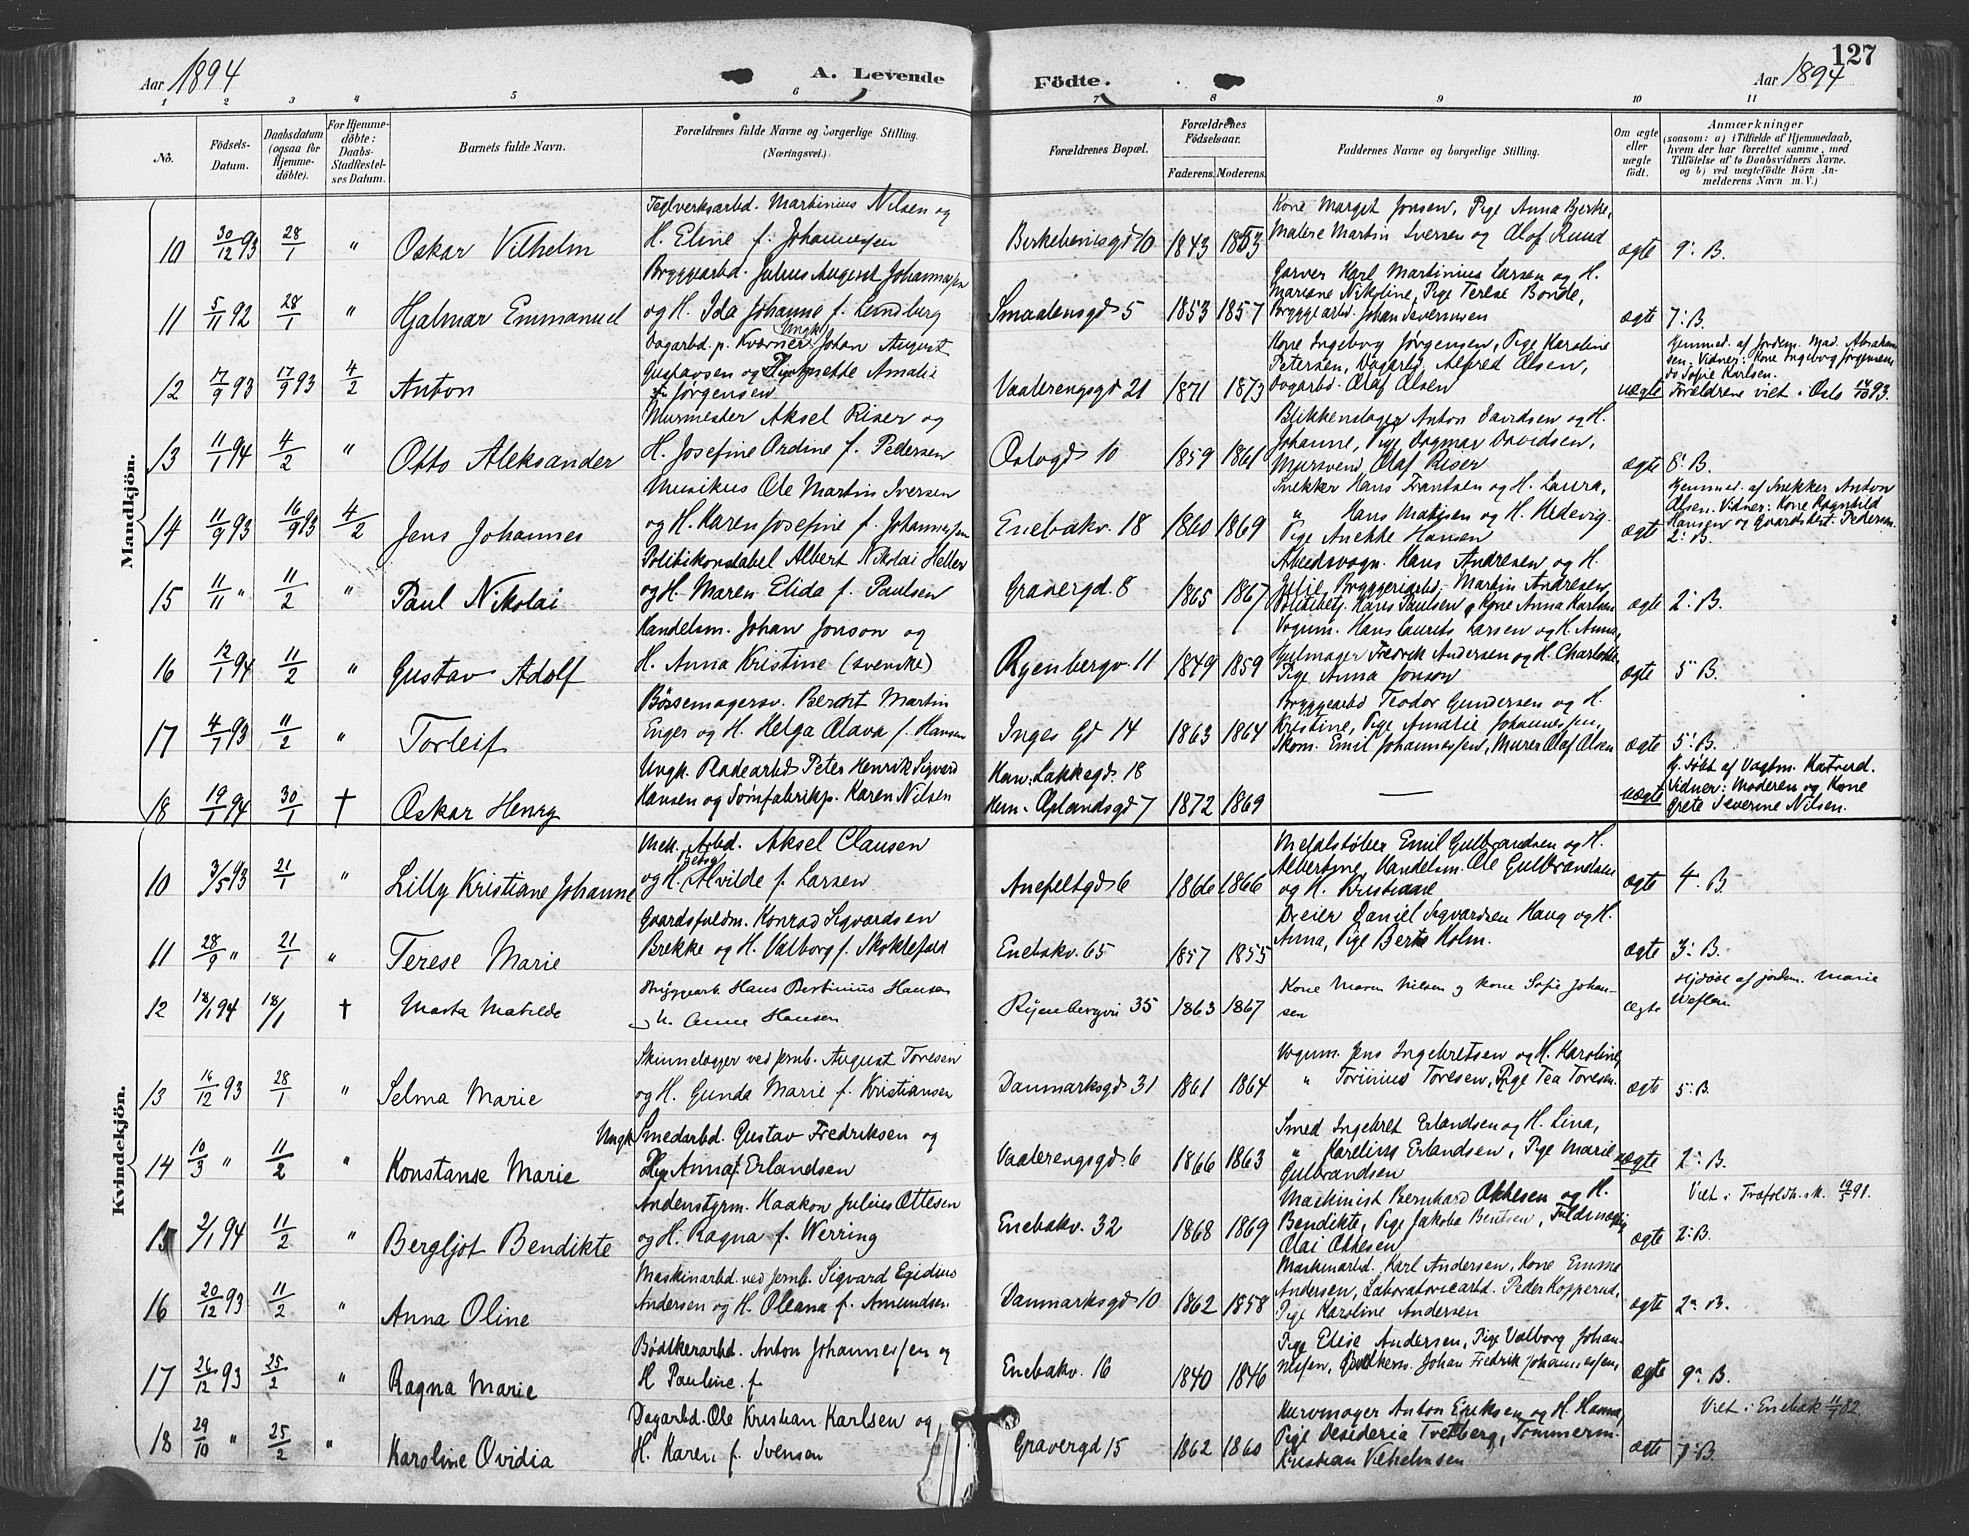 127
Aar 1894
A. Levende
Födte.
Aar 1894
1 2 3 4 5 6 7 8 9 10 11
No.
Födsels-Datum.
Daabsdatum (ogsaa for Hjemme-döbte).
For Hjemme-döbte: Daabs-Stadfæstel-ses Datum.
Barnets fulde Navn.
Forældrenes fulde Navne og borgerlige Stilling.
(Næringsvei.)
Forældrenes Bopæl.
Forældrenes Födselsaar.
Faderens. Moderens.
Faddernes Navne og borgerlige Stilling.
Om ægte eller uægte födt.
Anmærkninger
(saasom: a) i Tilfælde af Hjemmedaab, hvem der har forrettet samme, med Tilföielse af to Daabsvidners Navne, og b) ved uægtefödte Börn An-melderens Navn m. V.)
Mandkjön.
10 30/12 93 28/1 " Oskar Vilhelm
Teglverksarbd. Martinius Nilsen og
H. Eline f. Johannessen
Birkebeinsgd 10 1843 1853
Kone Marget Jonsen, Pige Anna Bjerke,
Malere Martin Iversen og Olof Ruud
ægte 9: B.
11 5/11 92 28/1 " Hjalmar Emmanuel
Bryggearbd. Julius August Johannessen
og H. Ida Johanne f. Lindberg
Smaalensgd 5 1853 1857
Garver Karl Martinius Larsen og H.
Mariane Nikoline, Pige Terese Bonde,
Bryggearbd. Johan Severinsen
ægte 7: B.
12 17/9 93 17/9 93 4/2 Anton
Dagarbd. p. Kværner Ungk. Johan August
Gustavsen og Amalie
f. Jørgensen
Vaalerengsgd 21 1871 1873
Kone Ingeborg Jørgensen, Pige Karoline
Petersen, Dagarbd. Alfred Olsen,
Dagarbd. Olaf Olsen
uægte
Hjemmed. af Jordem. Mad. Abraham-
sen. Vidner: Kone Ingebog Jørgensen
do Sofie Karlsen.
Forældrene viet i Oslo 14/10 93.
13 11/1 94 4/2 " Otto Aleksander
Murmester Aksel Riser og
H. Josefine Ordine f. Pedersen
Oslogd 10 1859 1861
Blikkenslager Anton Davidsen og H.
Johanne, Pige Dagmar Davidsen,
Mursvend Olaf Riser
ægte 6: B.
14 11/9 93 16/9 93 4/2 Jens Johannes
Musikus Ole Martin Iversen
og H. Karen Josefine f. Johannessen
Enebakv. 18 1860 1869
Snekker Hans Frantsen og H. Laura,
" Hans Matisen og H. Hedevig.
Pige Anekke Hansen
ægte
Hjemmed. af Snekker Anton
Olsen. Vidner: Kone Ragnhild
Hansen og Gaardsbest. Pedersen.
2: B.
15 11/11 " 11/2 " Paul Nikolai
Politikonstabel Albert Nikolai Heller
og H. Maren Elida f. Paulsen
Gravergd. 8 1865 1867
Arbeidsvogn. Hans Andresen og H.
Julie, Bryggeriarbd. Martin Andresen,
Politibetj. Hans Paulsen, Kone Anna Karlsen
ægte 2: B.
16 12/1 94 11/2 " Gustav Adolf
Handelsm. Johan Jonson og
H. Anna Kristine (svenske)
Ryenbergv. 11 1849 1859
Vognm. Hans Laurits Larsen og H. Anna,
Hjulmager Fredrik Andersen og H. Charlotte,
Pige Anna Jonson
ægte 5: B.
17 4/7 93 11/2 " Torleif
Börsemagersv. Bernt Martin
Enger og H. Helga Olava f. Hansen
Inges Gd 14 1863 1864
Bryggearbd Teodor Gundersen og H.
Kristine, Pige Amalie Johannessen,
Skom. Emil Johannessen, Murer Olaf Olsen
ægte 5: B.
18 19/1 94 30/1 † Oskar Henry
Ungk. Pladearbd. Peter Henrik Sigvard
Hansen og Sømfabrikp. Karen Nilsen
Han: Lakkegd. 18
Hun: Oplandsgd 7 1872 1869
—
uægte
Hj. Døbt af Vagtm. Katrud.
Vidner: Moderen og Kone
Grete Severine Nilsen.
Kvindekjön.
10 3/5 93 21/1 " Lilly Kristiane Johanne
Mek. Arbd. Aksel Clausen
og H. Betsy Alvilde f. Larsen
Anefeltgd 6 1866 1866
Metalstøber Emil Gulbrandsen og H.
Albertine, Handelsm. Ole Gulbrandsen
og H. Kristiane
ægte 4. B.
11 28/9 " 21/1 " Terese Marie
Gaardsfuldm. Konrad Sigvardsen
Brekke og H. Valborg f. Skoklefald
Enebakv. 65 1857 1855
Dreier Daniel Sigvardsen Haug og H.
Anna, Pige Berta Holm.
ægte 3: B.
12 18/1 94 18/1 † Marta Matilde
Bryggearb. Hans Bertinius Hansen
H. Anne Hansen
Ryenbergvei 35 1863 1867
Kone Maren Nilsen og Kone Sofie Johan-
sen
ægte
Hjdøbt af jordem. Marie
13 16/12 93 28/1 " Selma Marie
Skinnelægger ved Jernb. August Toresen
og H. Gunda Marie f. Kristiansen
Danmarksgd 31 1861 1864
Vognm. Jens Ingebretsen og H. Karoline,
" Torinius Toresen, Pige Tea Toresen.
ægte 5: B.
14 10/3 " 11/2 " Konstanse Marie
Ungk. Smedarbd. Gustav Fredriksen og
Anna f. Erlandsen
Vaalerengsgd 6 1866 1863
Smed Ingebret Erlandsen og H. Lina,
" Karelius Erlandsen, Pige Marie
Gulbrandsen
uægte 2: B.
15 2/1 94 11/2 " Bergljot Bendikte
Andenstyrm. Haakon Julius Ottesen
og H. Ragna f. Werring
Enebakv. 32 1868 1869
Maskinist Bernhard Ottesen og H.
Bendikte, Pige Jakoba Bentsen, Fuldmægtig
Olai Ottesen
ægte
Viet i Trefoldh. k. 19/5 91.
2: B.
16 20/12 93 11/2 " Anna Oline
Maskinarbd. ved Jernb. Sigvard Egidius
Andersen og H. Oleana f. Amundsen.
Danmarksgd 10 1862 1858
Maskinarbd. Karl Andersen, Kone Emma
Andersen, Laboratoriearbd. Peder Kopperud,
Pige Karoline Andersen
ægte 2: B.
17 26/12 93 25/2 " Ragna Marie
Bødkerarbd. Anton Johannessen og
H. Pauline f.
Enebakv. 16 1840 1846
Pige Elise Andersen, Pige Valborg Johan-
nessen, Bødkersv. Johan Fredrik Johannessen,
ægte 9: B.
18 29/10 " 25/2 " Karoline Ovidia
Dagarbd. Ole Kristian Karlsen og
H. Karen f. Svensen
Gravergd 15 1862 1860
Kurvmager Anton Eriksen og H. Hanna,
Pige Desideria Tvetberg, Tømmerm.
Kristian Vilhelmsen
ægte
Viet i Enebak 11/7 82.
7: B.